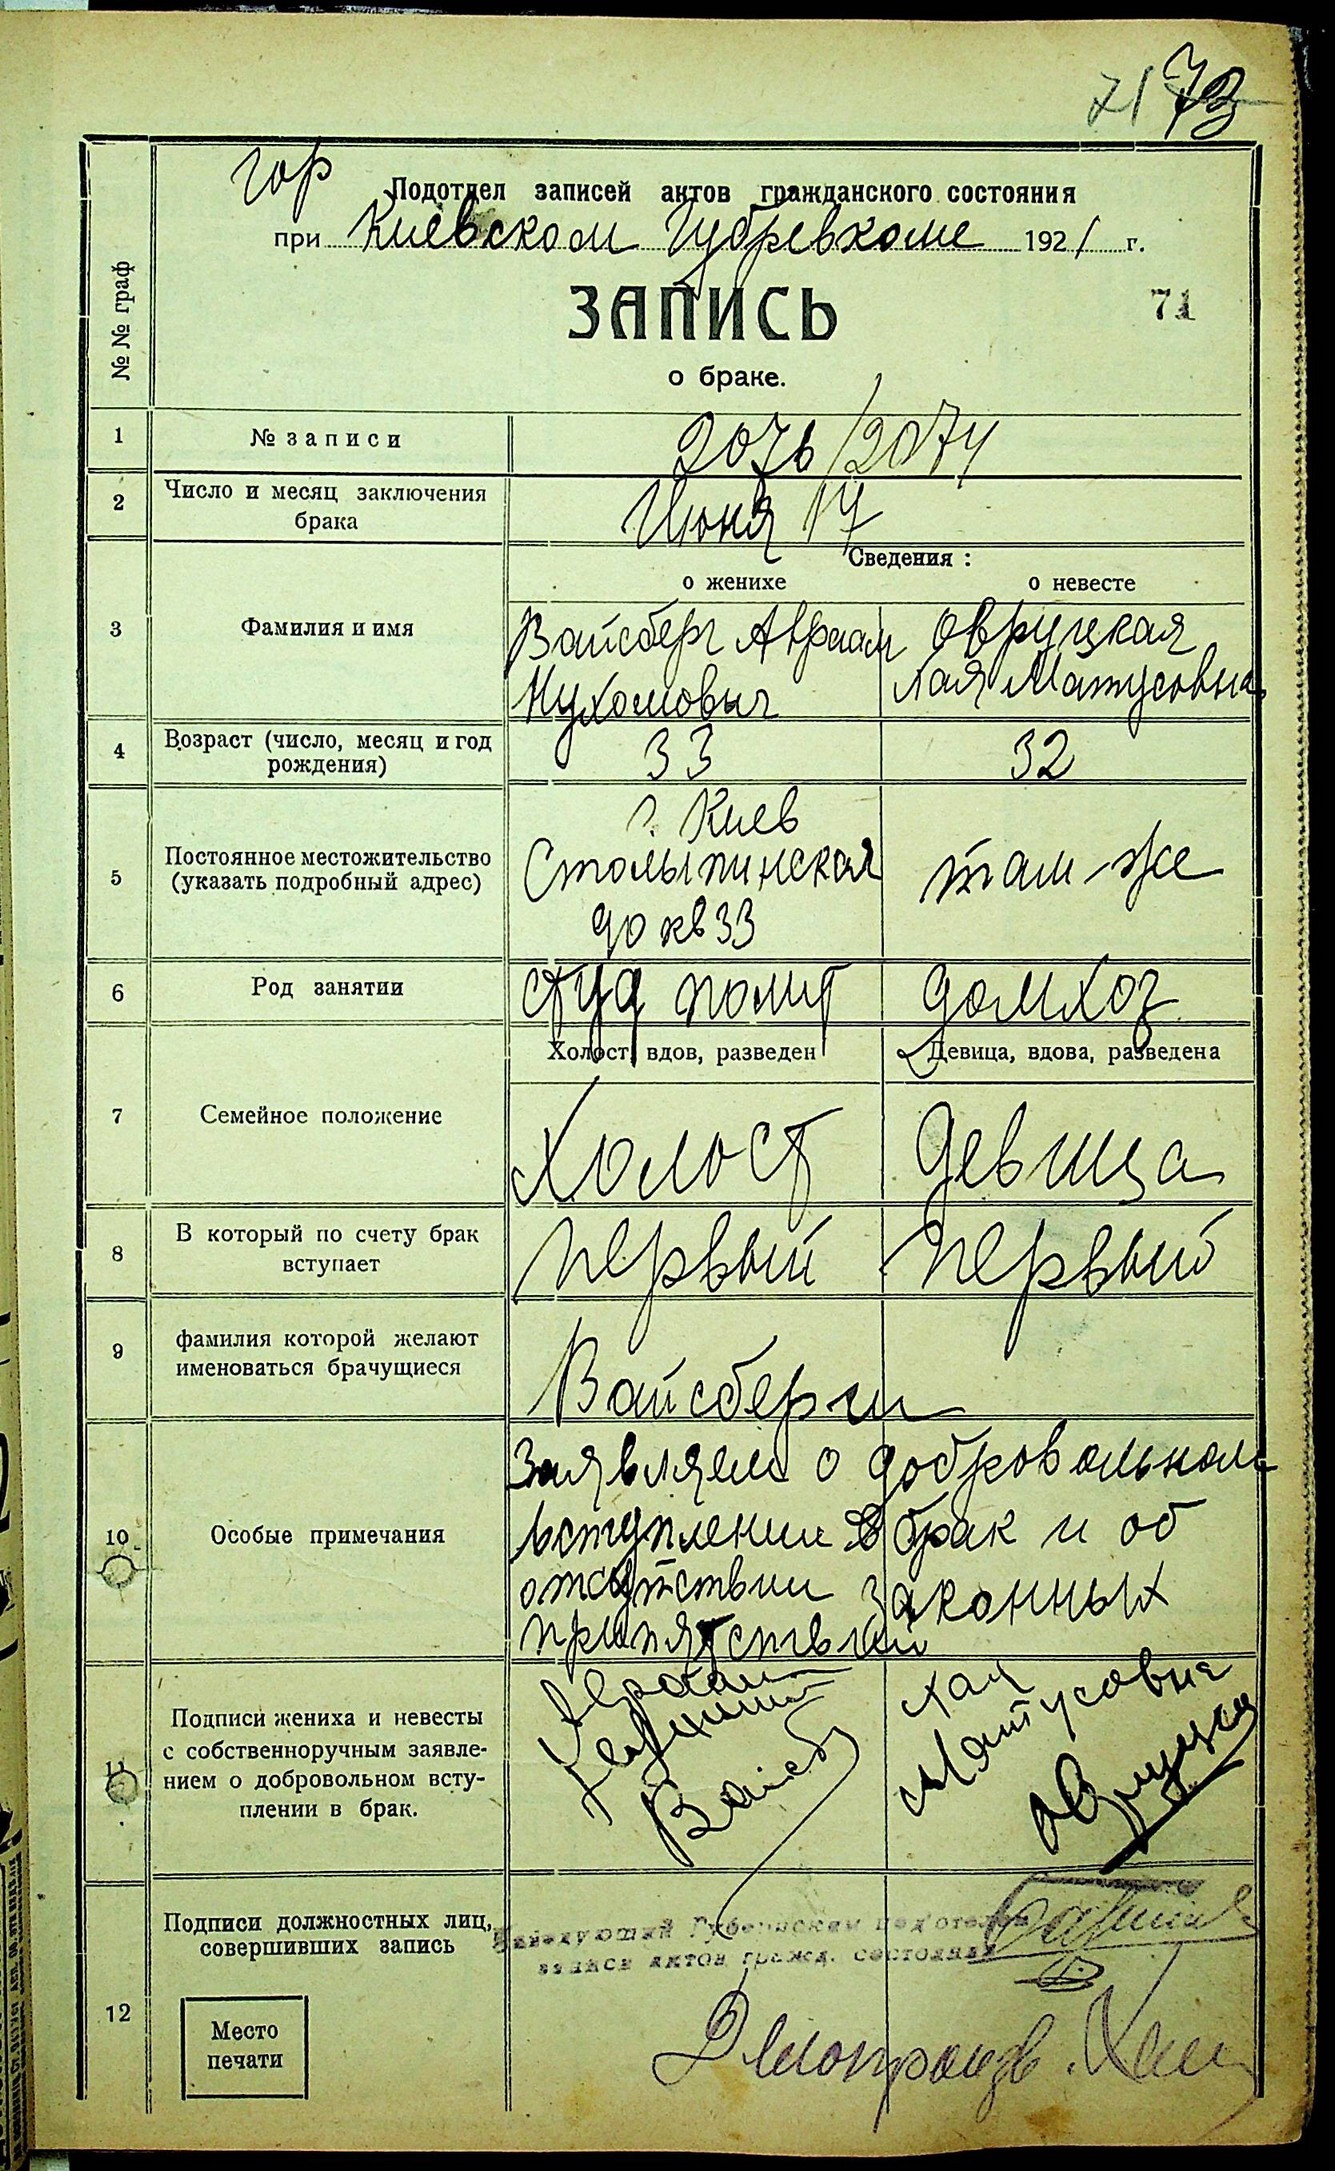 71 73
гор
Подотдел записей актов гражданского состояния
при Киевском Губревкоме 1921 г.
ЗАПИСЬ
71
о браке.
№ № граф
1 № записи 2076/2074
2 Число и месяц заключения
брака
Июня 17
Сведения :
о женихе о невесте
3 Фамилия и имя
Вайсберг Авраам Овруцкая
Нухомович Хая Матусовна
4 Возраст (число, месяц и год
рождения)
33 32
5 Постоянное местожительство
(указать подробный адрес)
г. Киев
Столыпинская там-же
90 кв 33
6 Род занятии студ полит домхоз
Холост, вдов, разведен Девица, вдова, разведена
7 Семейное положение
Холост Девица
8 В который по счету брак
вступает
Первый Первый
9 фамилия которой желают
именоваться брачущиеся
Вайсберги
10 Особые примечания
Заявляем о добровольном
вступлении в брак и об
отсутствии законных
припятствий
11 Подписи жениха и невесты
с собственноручным заявле-
нием о добровольном всту-
плении в брак.
Авраам
Вайсб
Хая
Матусовна
12 Подписи должностных лиц,
совершивших запись
Заведующий Губернским под'отделом
записи актов гражд. состояния
Место
печати